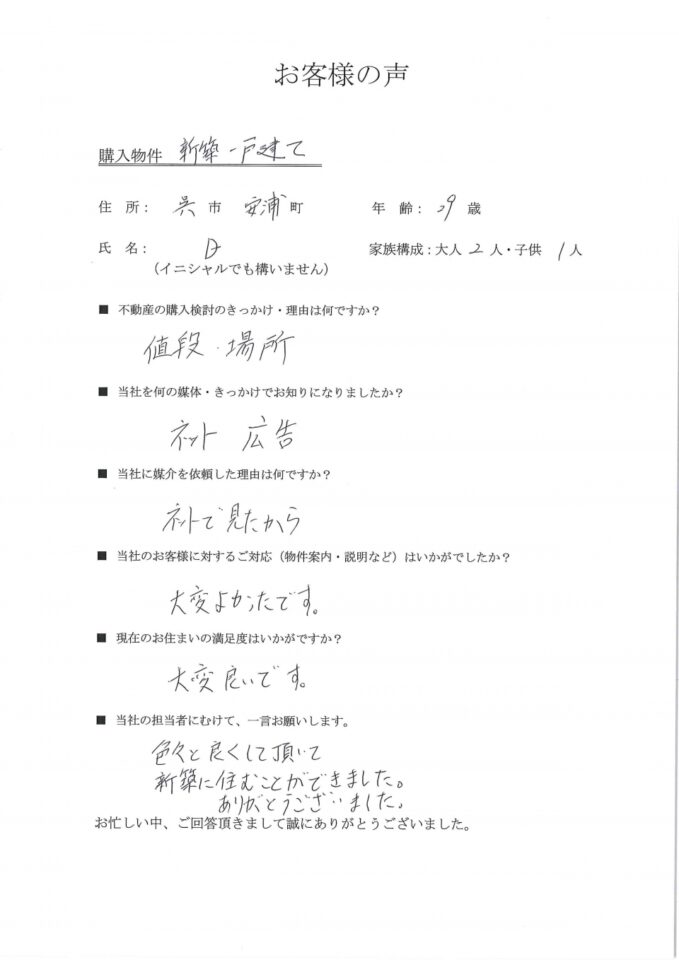 お客様の声
購入物件 新築一戸建て
住 所： 呉 市 安浦 町 年 齢： 29 歳
氏 名： D 家族構成：大人 2 人・子供 1 人
（イニシャルでも構いません）
■ 不動産の購入検討のきっかけ・理由は何ですか？
値段・場所
■ 当社を何の媒体・きっかけでお知りになりましたか？
ネット 広告
■ 当社に媒介を依頼した理由は何ですか？
ネットで見たから
■ 当社のお客様に対するご対応（物件案内・説明など）はいかがでしたか？
大変よかったです。
■ 現在のお住まいの満足度はいかがですか？
大変良いです。
■ 当社の担当者にむけて、一言お願いします。
色々と良くして頂いて
新築に住むことができました。
ありがとうございました。
お忙しい中、ご回答頂きまして誠にありがとうございました。